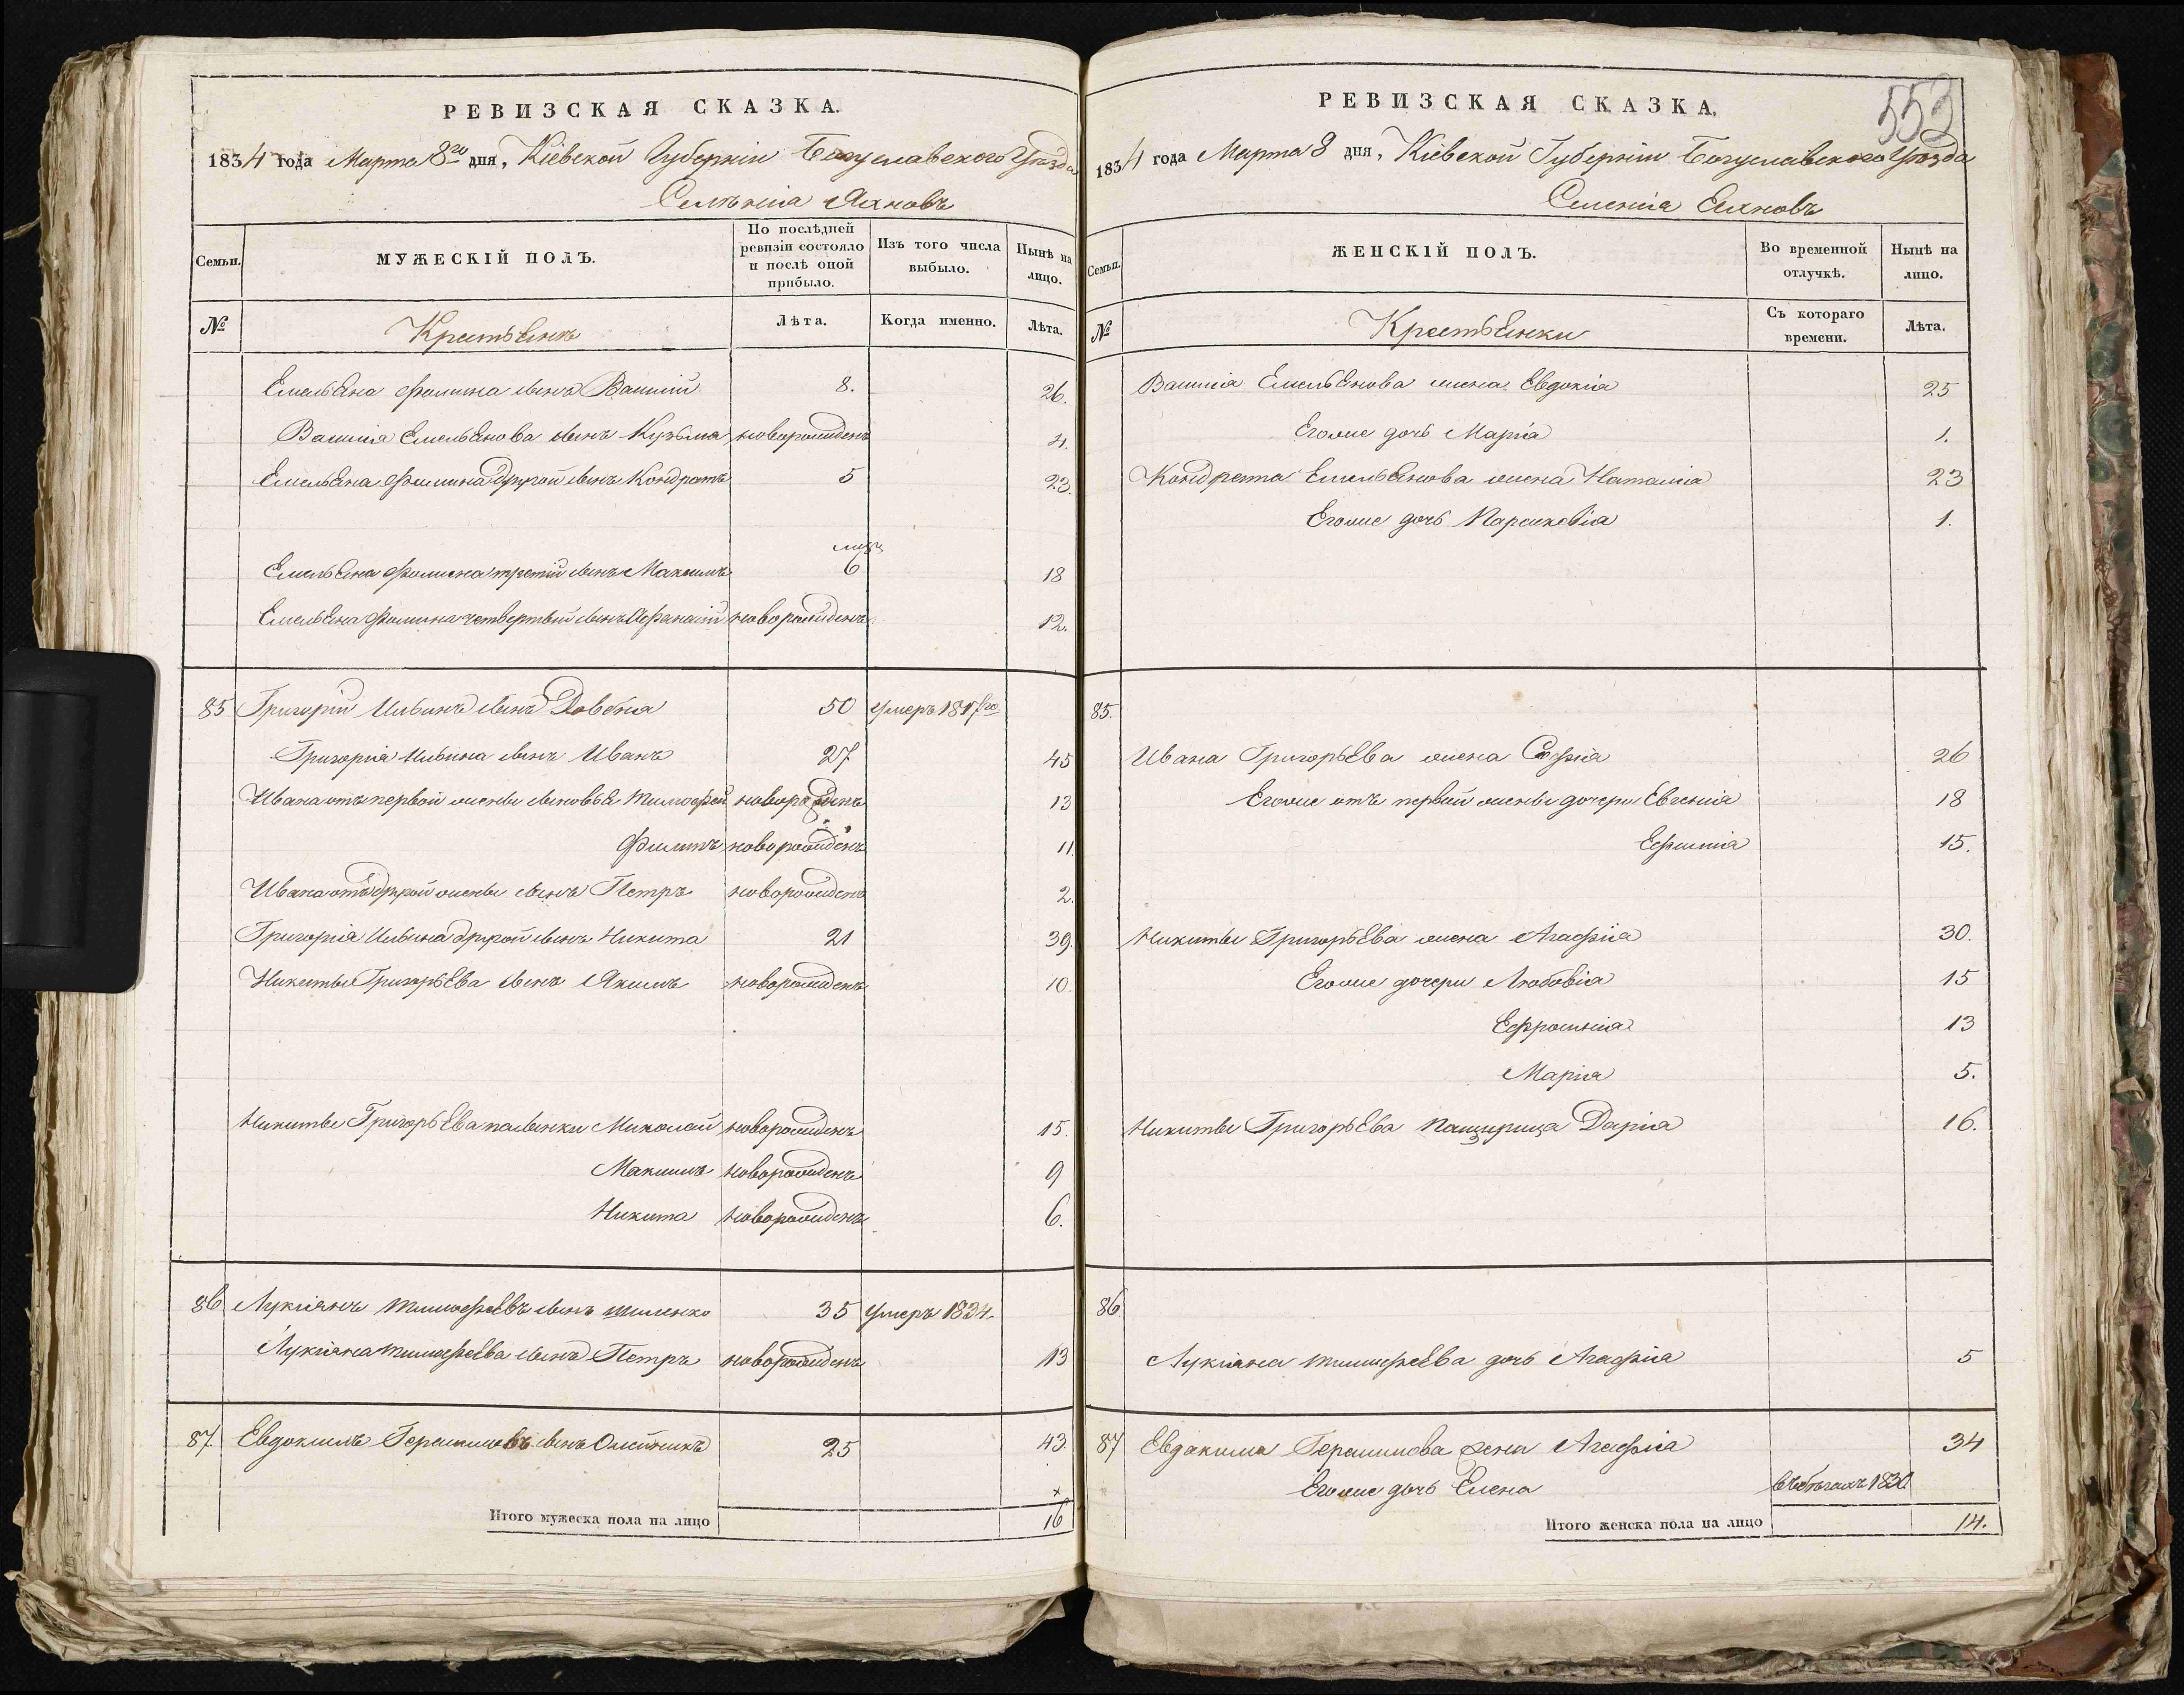 РЕВИЗСКАЯ СКАЗКА.
1834 года Марта 8го дня, Кіевской Губерніи Богуславскаго Уѣзда
Селѣнія Яхновъ
Семьи.
МУЖЕСКІЙ ПОЛЪ.
По послѣдней ревизіи состояло и послѣ оной прибыло.
Изъ того числа выбыло.
Нынѣ на лицо.
№
Крестьянъ
Лѣта.
Когда именно.
Лѣта.
Емельяна Фомина сынъ Василій 8. 26.
Василія Емельянова сынъ Кузьма новорожденъ 4.
Емельяна Фомина другой сынъ Кондратъ 5 23.
Емельяна Фомина третій сынъ Максимъ 6 18
Емельяна Фомина четвертый сынъ Афанасій новорожденъ 12.
85 Григорій Ильинъ сынъ Довбня 50 умеръ 1817го
Григорія Ильина сынъ Иванъ 27 45
Ивана отъ первой жены сыновья Тимофей новорожденъ 13
Филипъ новорожденъ 11.
Ивана отъ другой жены сынъ Петръ новорожденъ 2.
Григорія Ильина другой сынъ Никита 21 39.
Никиты Григорьева сынъ Якимъ новорожденъ 10.
Никиты Григорьева пасынки Миколай новорожденъ 15.
Максимъ новорожденъ 9
Никита новорожденъ 6.
86 Лукіянъ Тимофеевъ сынъ 35 умеръ 1834.
Лукіяна Тимофеева сынъ Петръ новорожденъ 13
87. Евдокимъ Герасимовъ сынъ Олейникъ 25 43.
Итого мужеска пола на лицо 16
553
РЕВИЗСКАЯ СКАЗКА.
1834 года Марта 8 дня, Кіевской Губерніи Богуславскаго Уѣзда
Селенія Яхновъ
Семьи.
ЖЕНСКІЙ ПОЛЪ.
Во временной отлучкѣ.
Нынѣ на лицо.
№
Крестьянки
Съ котораго времени.
Лѣта.
Василія Емельянова жена Евдокія 25
Его же дочь Марія 1.
Кондрата Емельянова жена Наталія 23
Его же дочь Парасковія 1.
85.
Ивана Григорьева жена Софія 26
Его же отъ первой жены дочери Евгенія 18
Ефимія 15.
Никиты Григорьева жена Агафія 30.
Его же дочери Любовія 15
Ефросинія 13
Марія 5.
Никиты Григорьева падщерица Дарія 16.
86
Лукіяна Тимофеева дочь Агафія 5
87 Евдокима Герасимова жена Агафія 34
Его же дочь Елена въ бѣгахъ 1830
Итого женска пола на лицо 14.